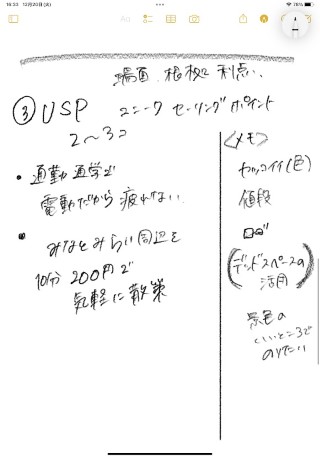 16:53 12月20日(火)
76%
場面、根拠と利点、
③ USP ユニーク セーリング ポイント
2〜3コ
・通勤通学で
電動だから疲れない
・みなとみらい周辺を
10分 200円で
気軽に散策
<メモ>
カッコイイ(色)
値段
ロゴ
(デッドスペースの
活用)
景色の
いいところで
のりたい